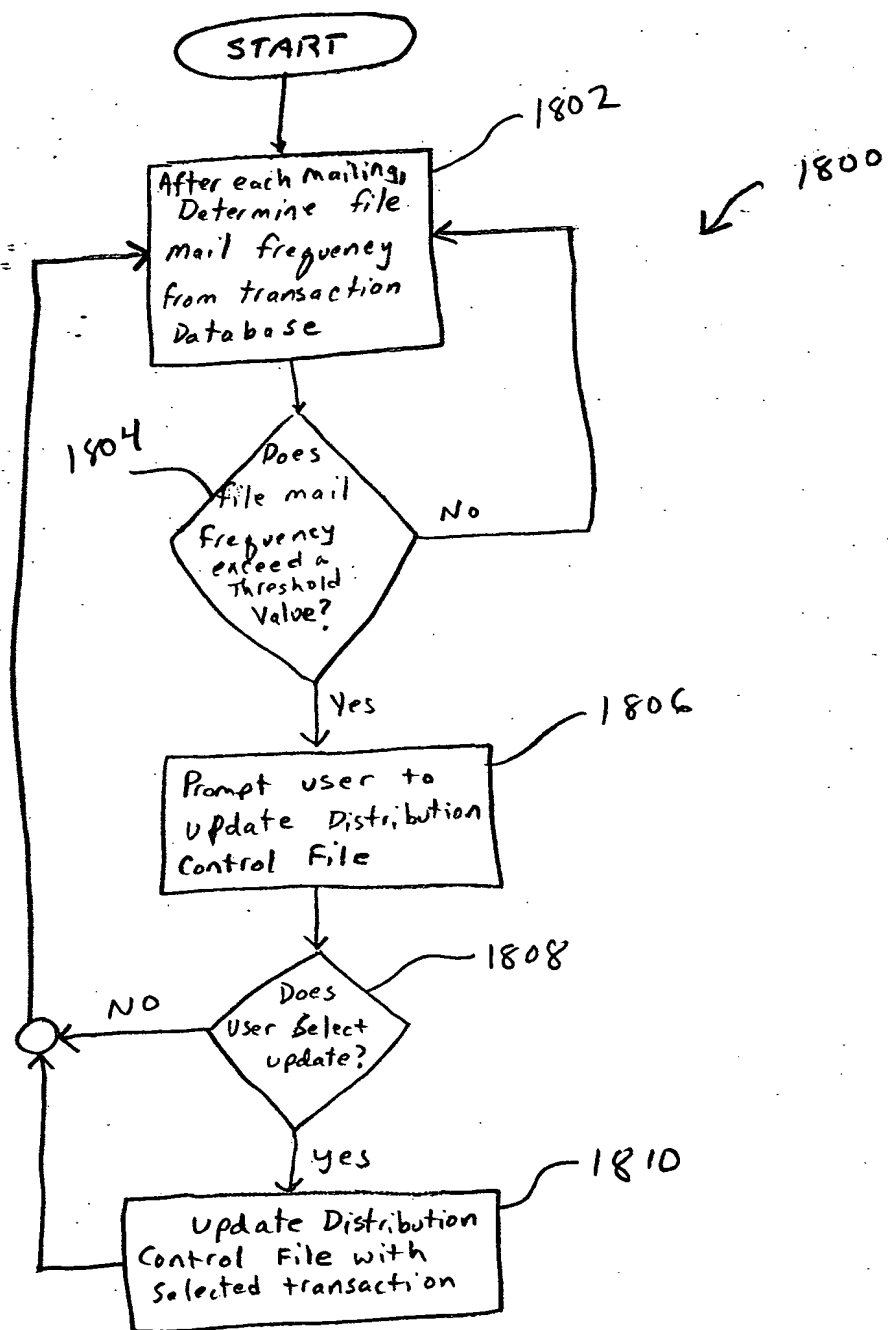 START
1802
1800
After each mailing,
Determine file
mail frequency
from transaction
Database
1804
Does
file mail
frequency
exceed a
Threshold
Value?
No
Yes
1806
Prompt user to
update Distribution
Control File
1808
Does
user select
update?
NO
yes
1810
update Distribution
Control File with
selected transaction